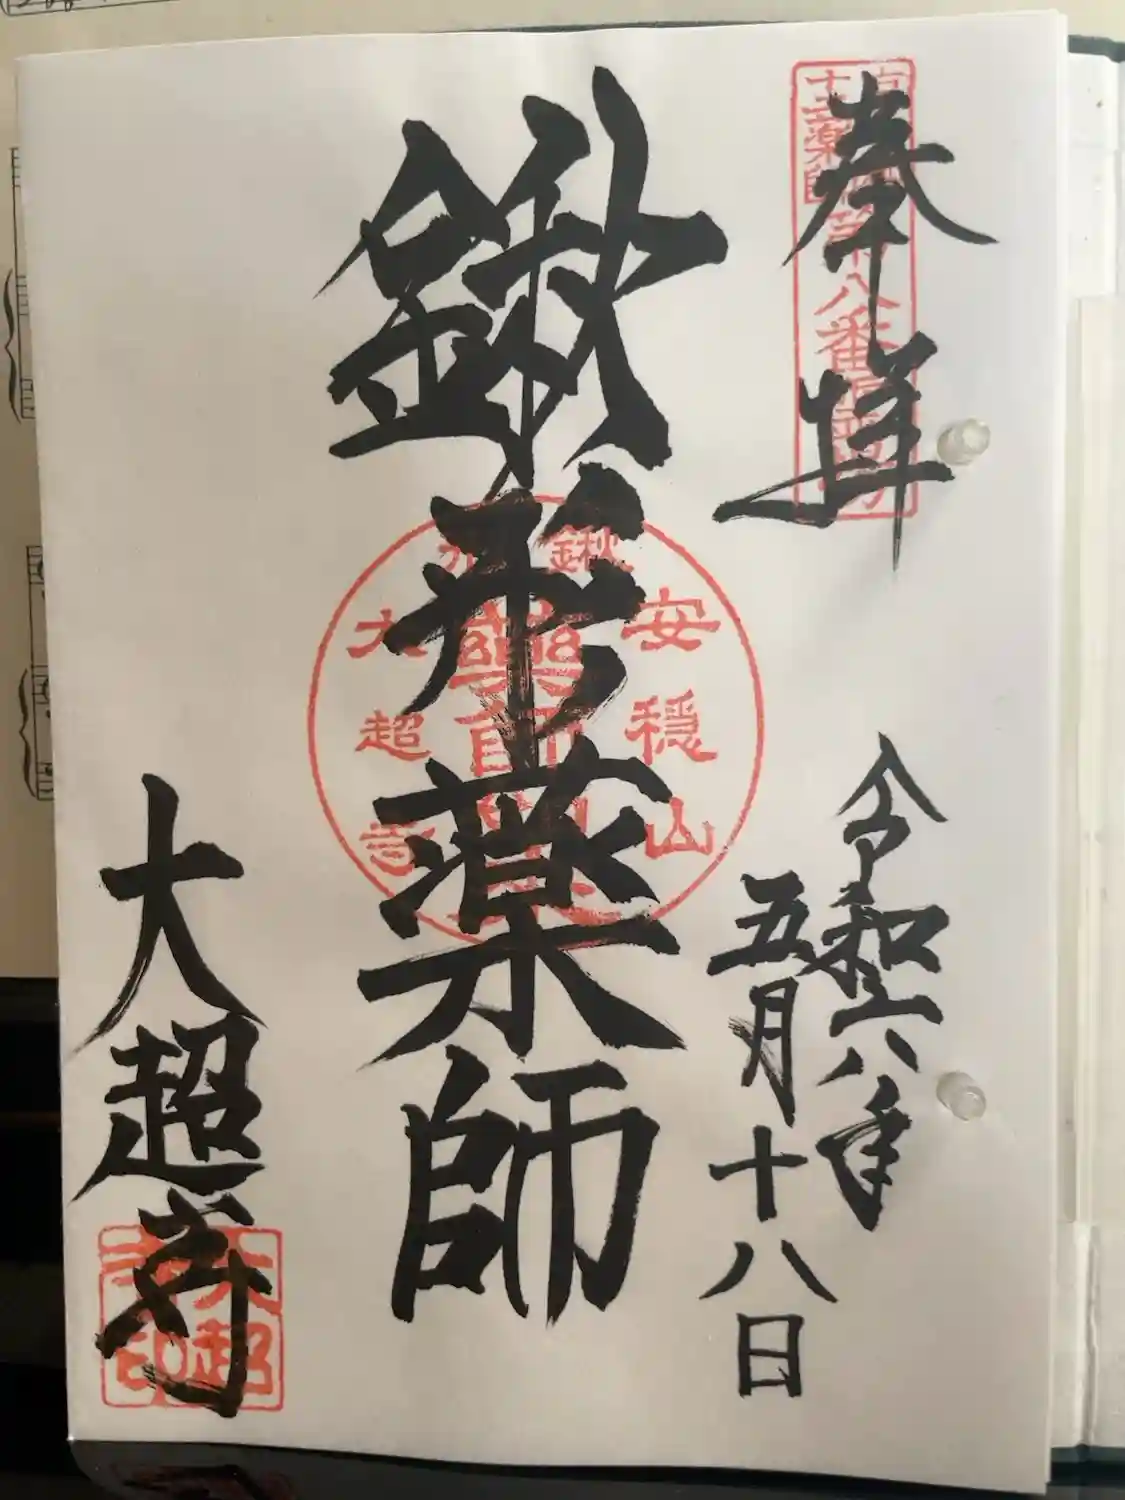 奉拝
第八番
令和六年
五月十八日
鍬形薬師
鍬形
安穏山
薬師
大超寺
大超寺
大超寺印